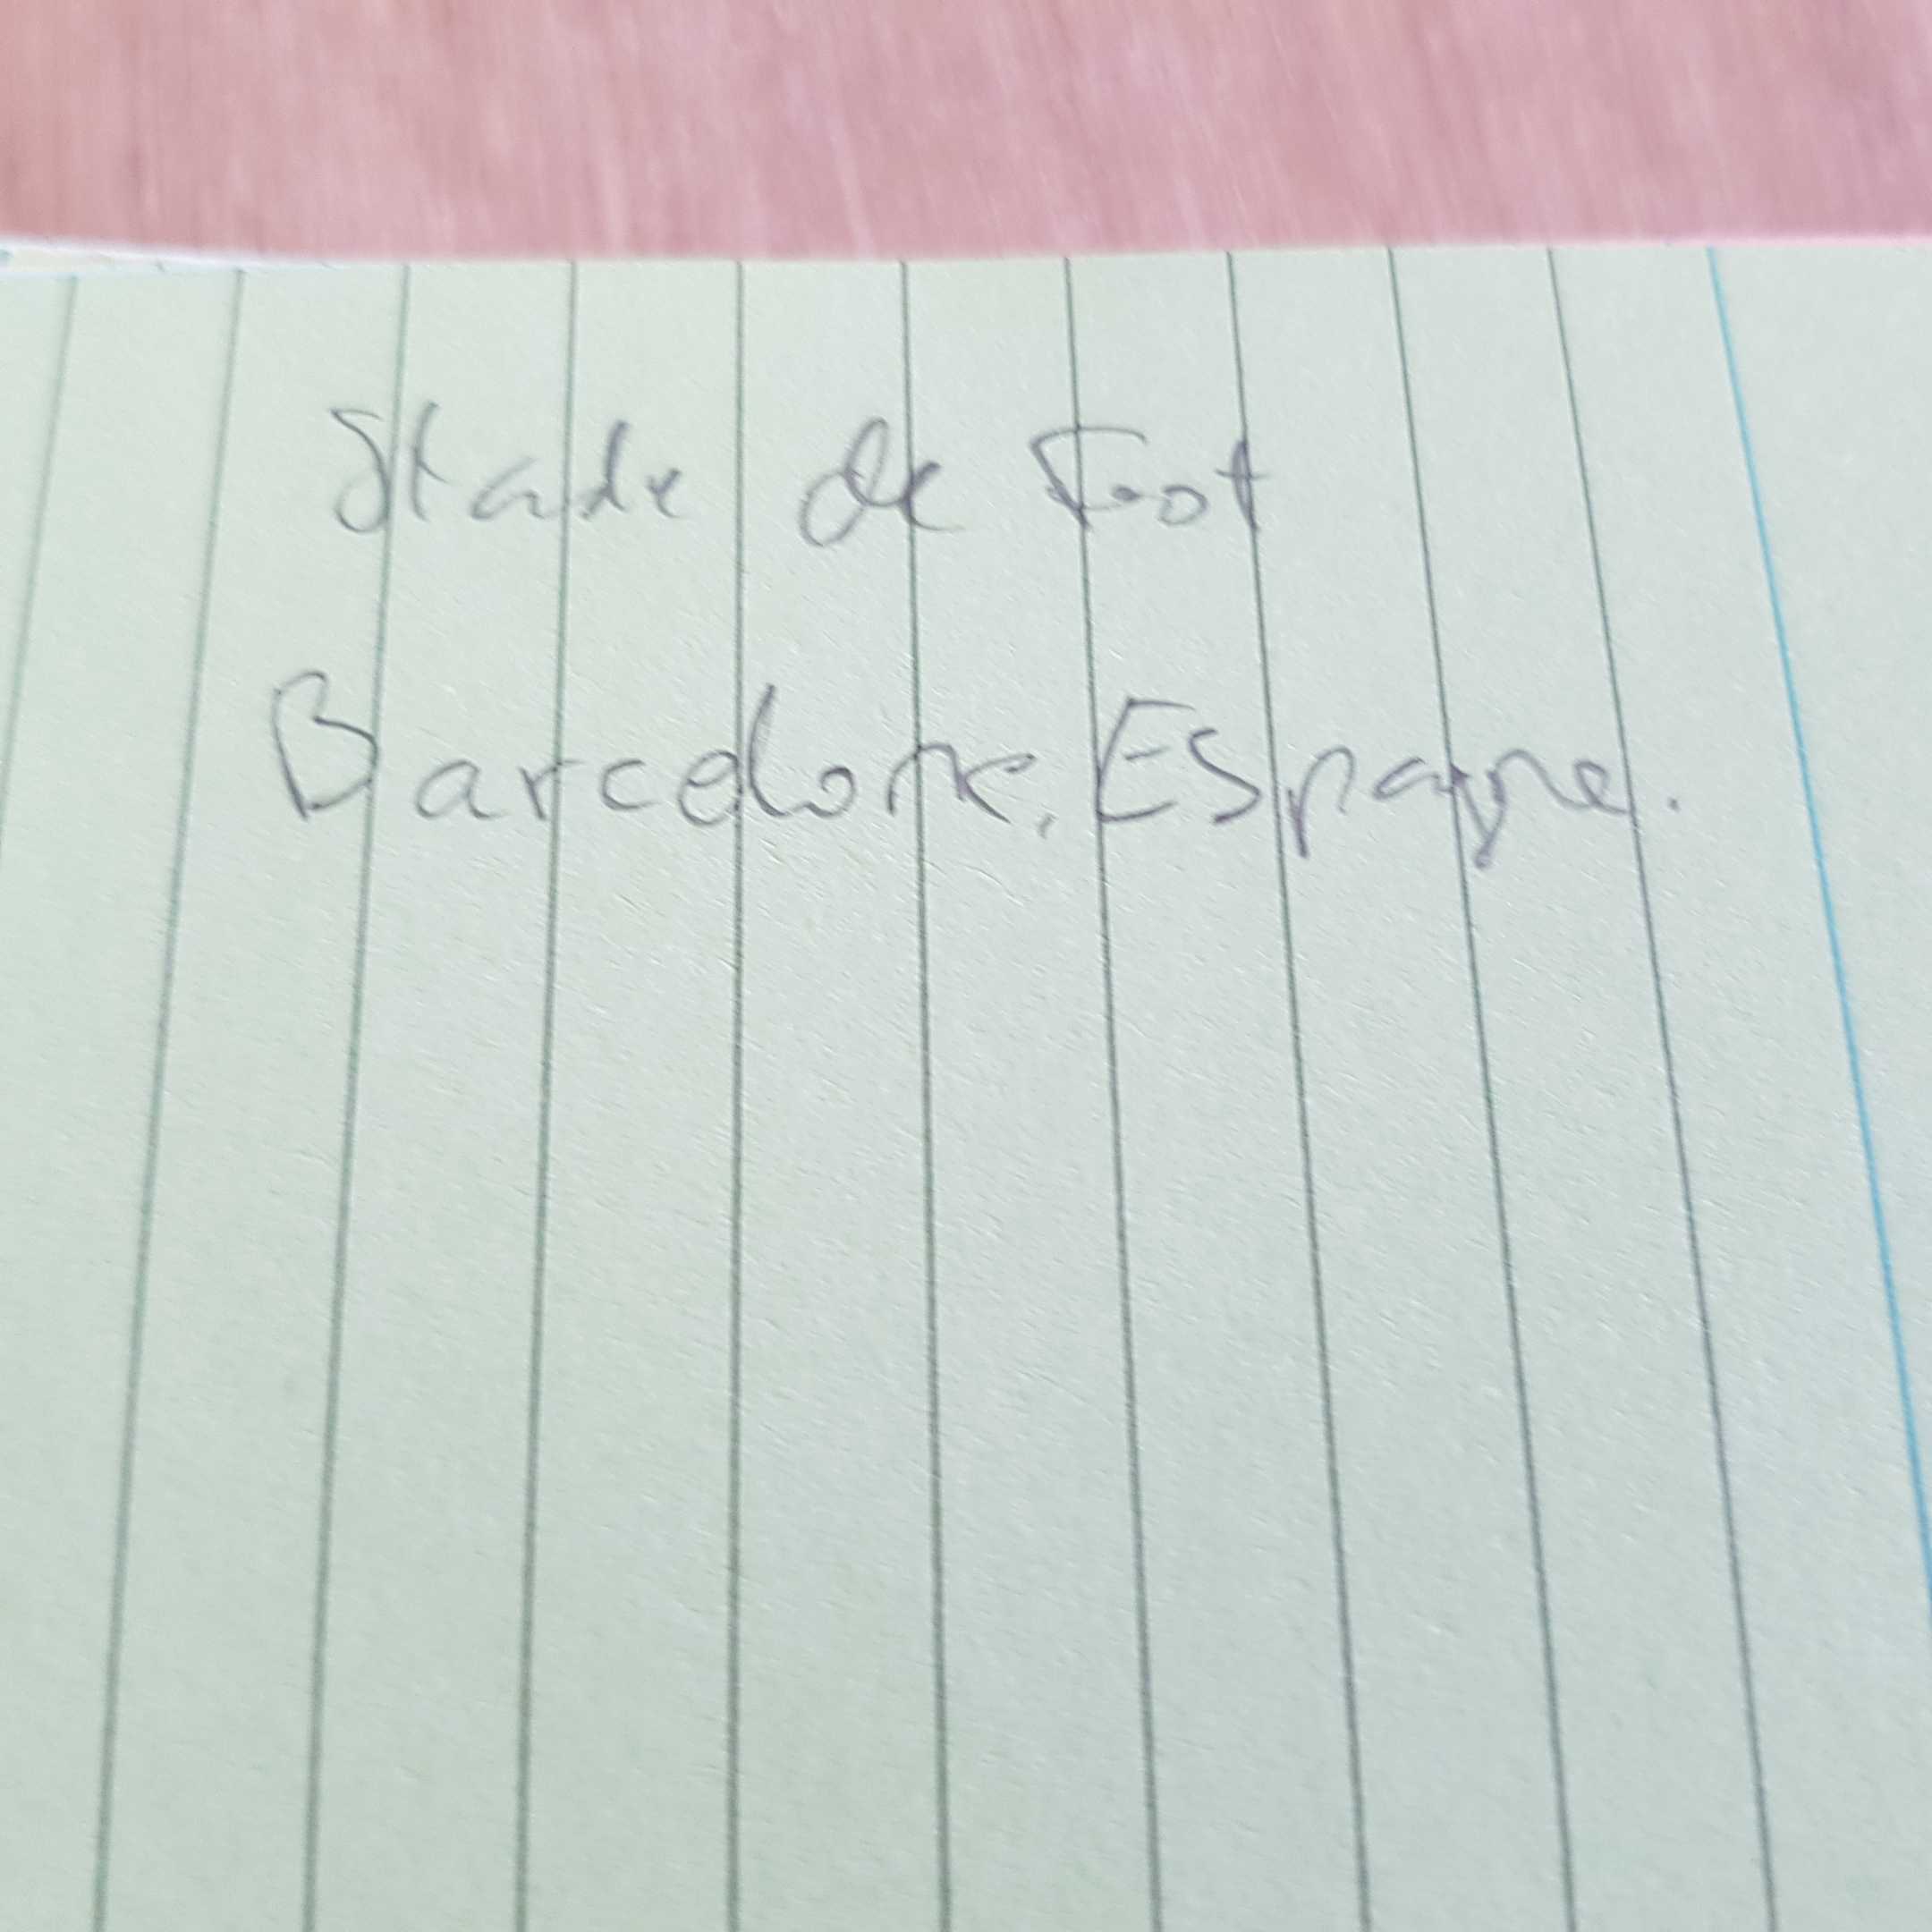 Stade de Foot
Barcelone, Espagne.